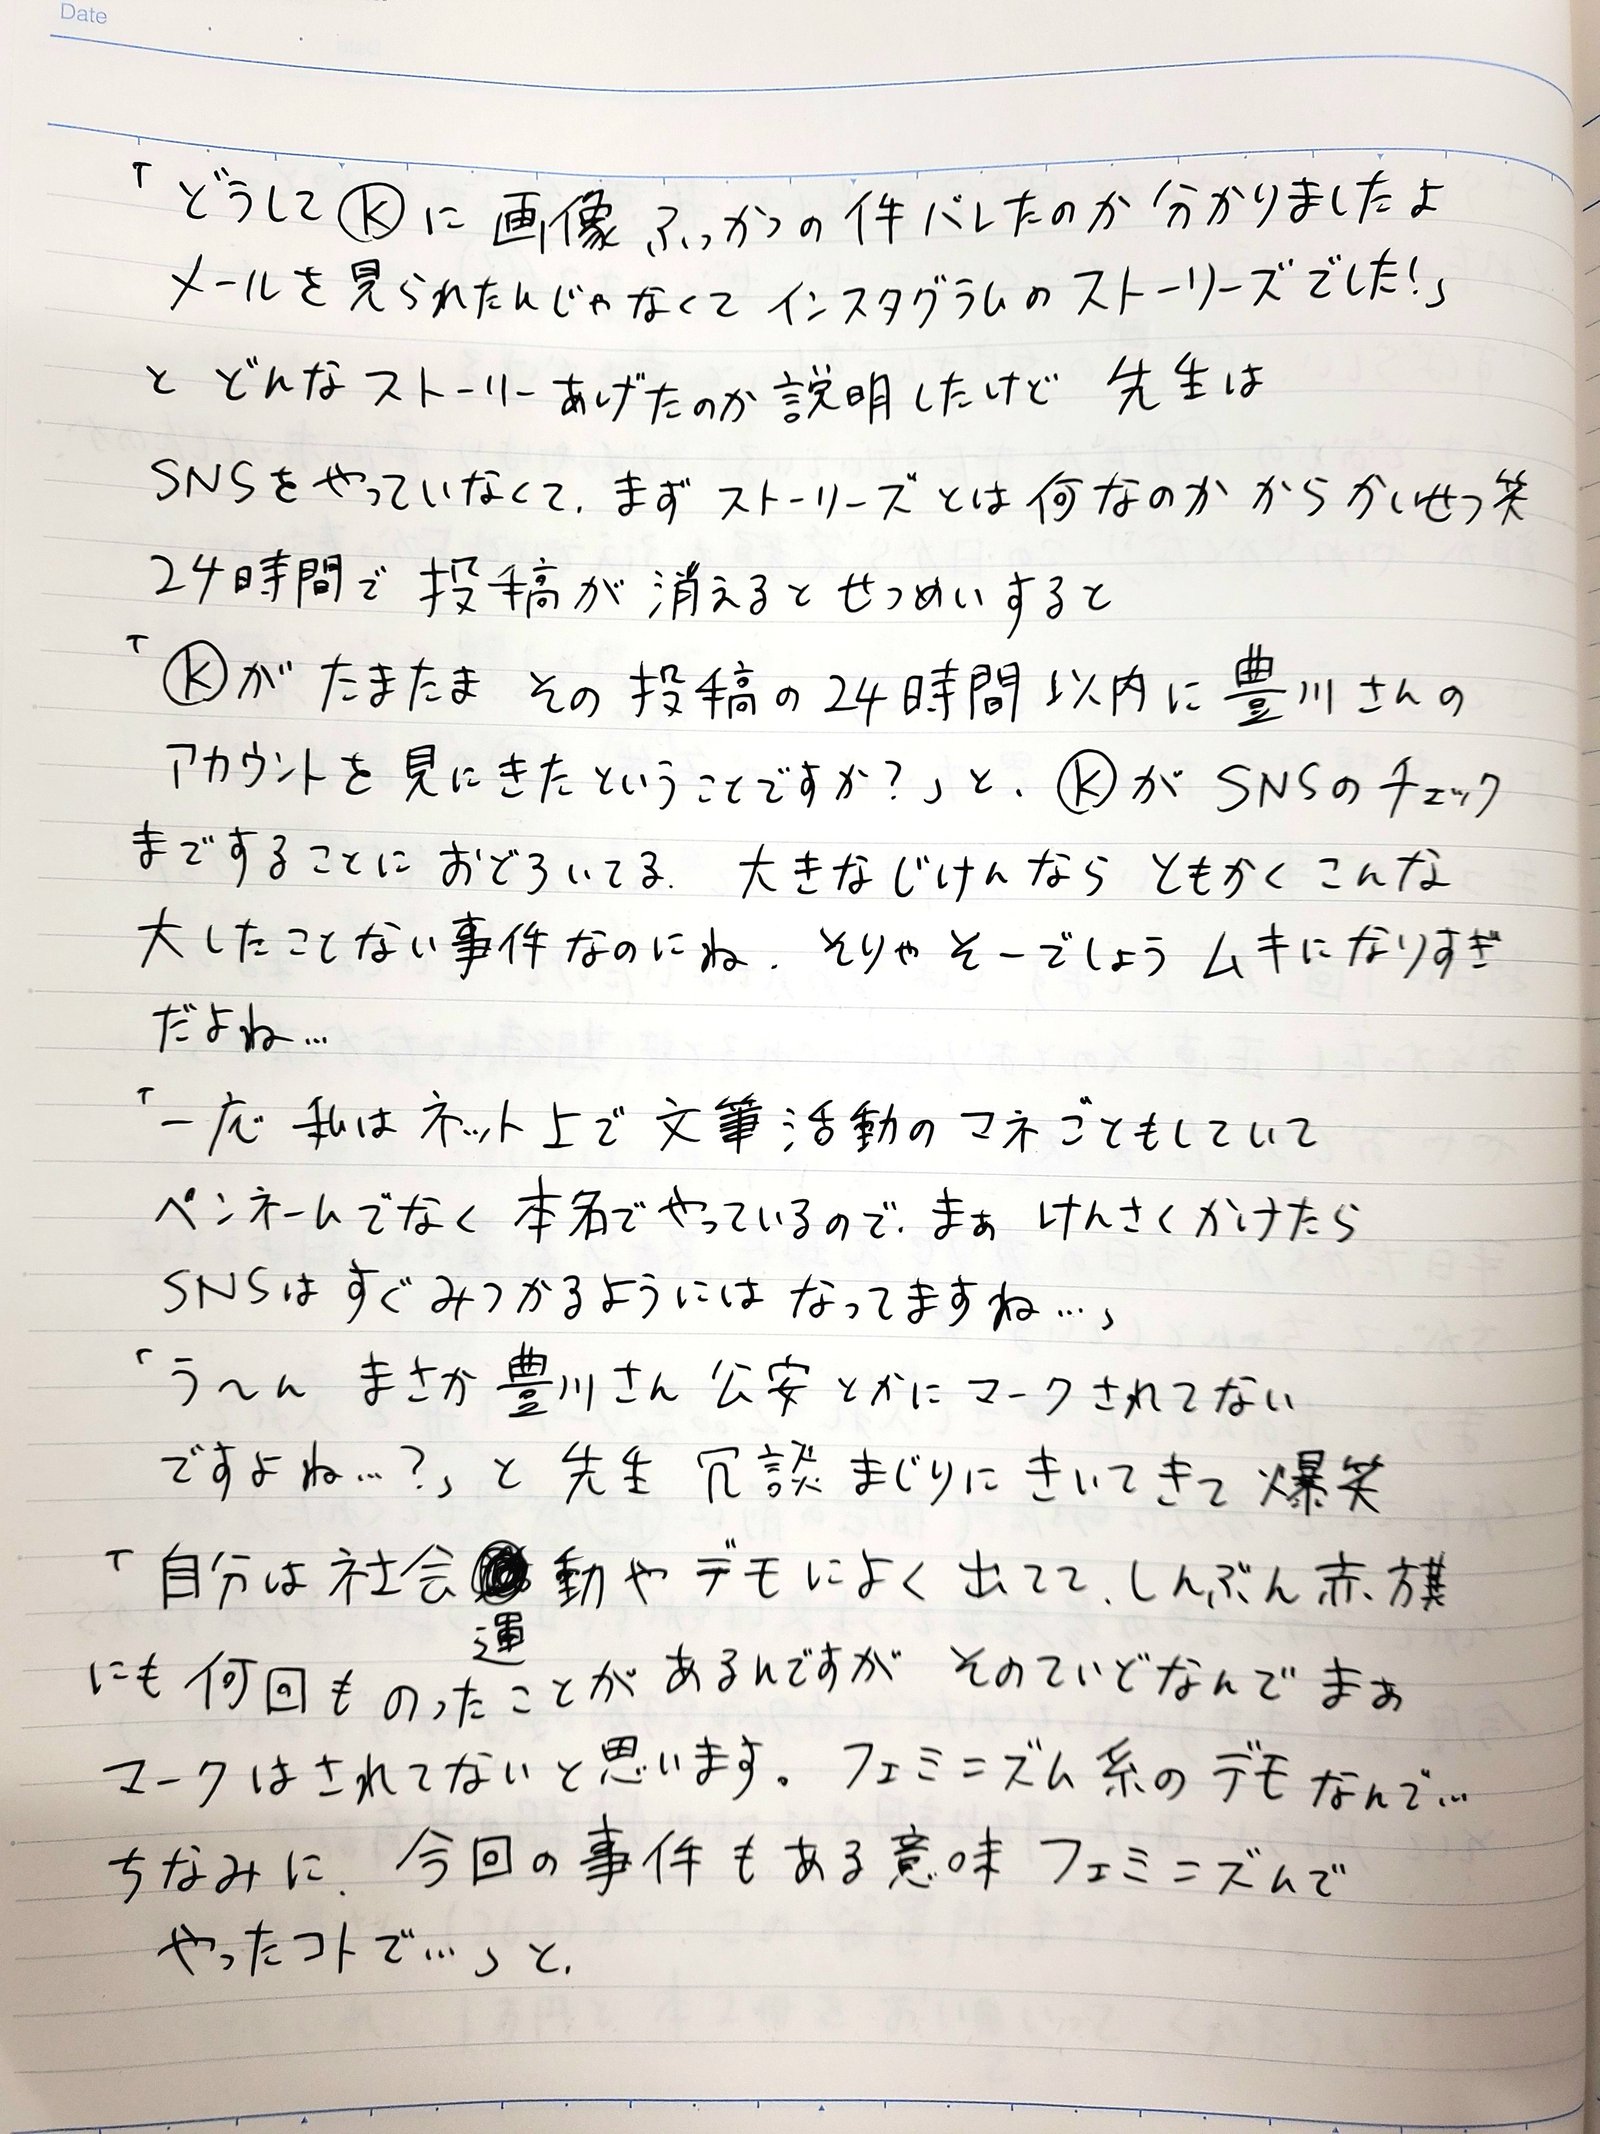 Date
「どうしてⓚに画像ふっかつの件バレたのか分かりましたよ
メールを見られたんじゃなくてインスタグラムのストーリーズでした!」
と どんなストーリーあげたのか説明したけど 先生は
SNSをやっていなくて、まずストーリーズとは何なのかからかいせつ笑
24時間で投稿が消えるとせつめいすると
「ⓚがたまたま その投稿の24時間以内に豊川さんの
アカウントを見にきたということですか?」と、ⓚがSNSのチェック
まですることにおどろいてる。大きなじけんならともかくこんな
大したことない事件なのにね。そりゃそーでしょう ムキになりすぎ
だよね…
「一応私はネット上で文筆活動のマネごともしていて
ペンネームでなく本名でやっているので、まぁ けんさくかけたら
SNSはすぐみつかるようにはなってますね…」
「う〜ん まさか豊川さん公安とかにマークされてない
ですよね…?」と先生冗談まじりにきいてきて爆笑
「自分は社会運動やデモによく出てて、しんぶん赤旗
にも何回ものったことがあるんですが そのていどなんでまぁ
マークはされてないと思います。フェミニズム系のデモなんで…
ちなみに、今回の事件もある意味フェミニズムで
やったコトで…」と。